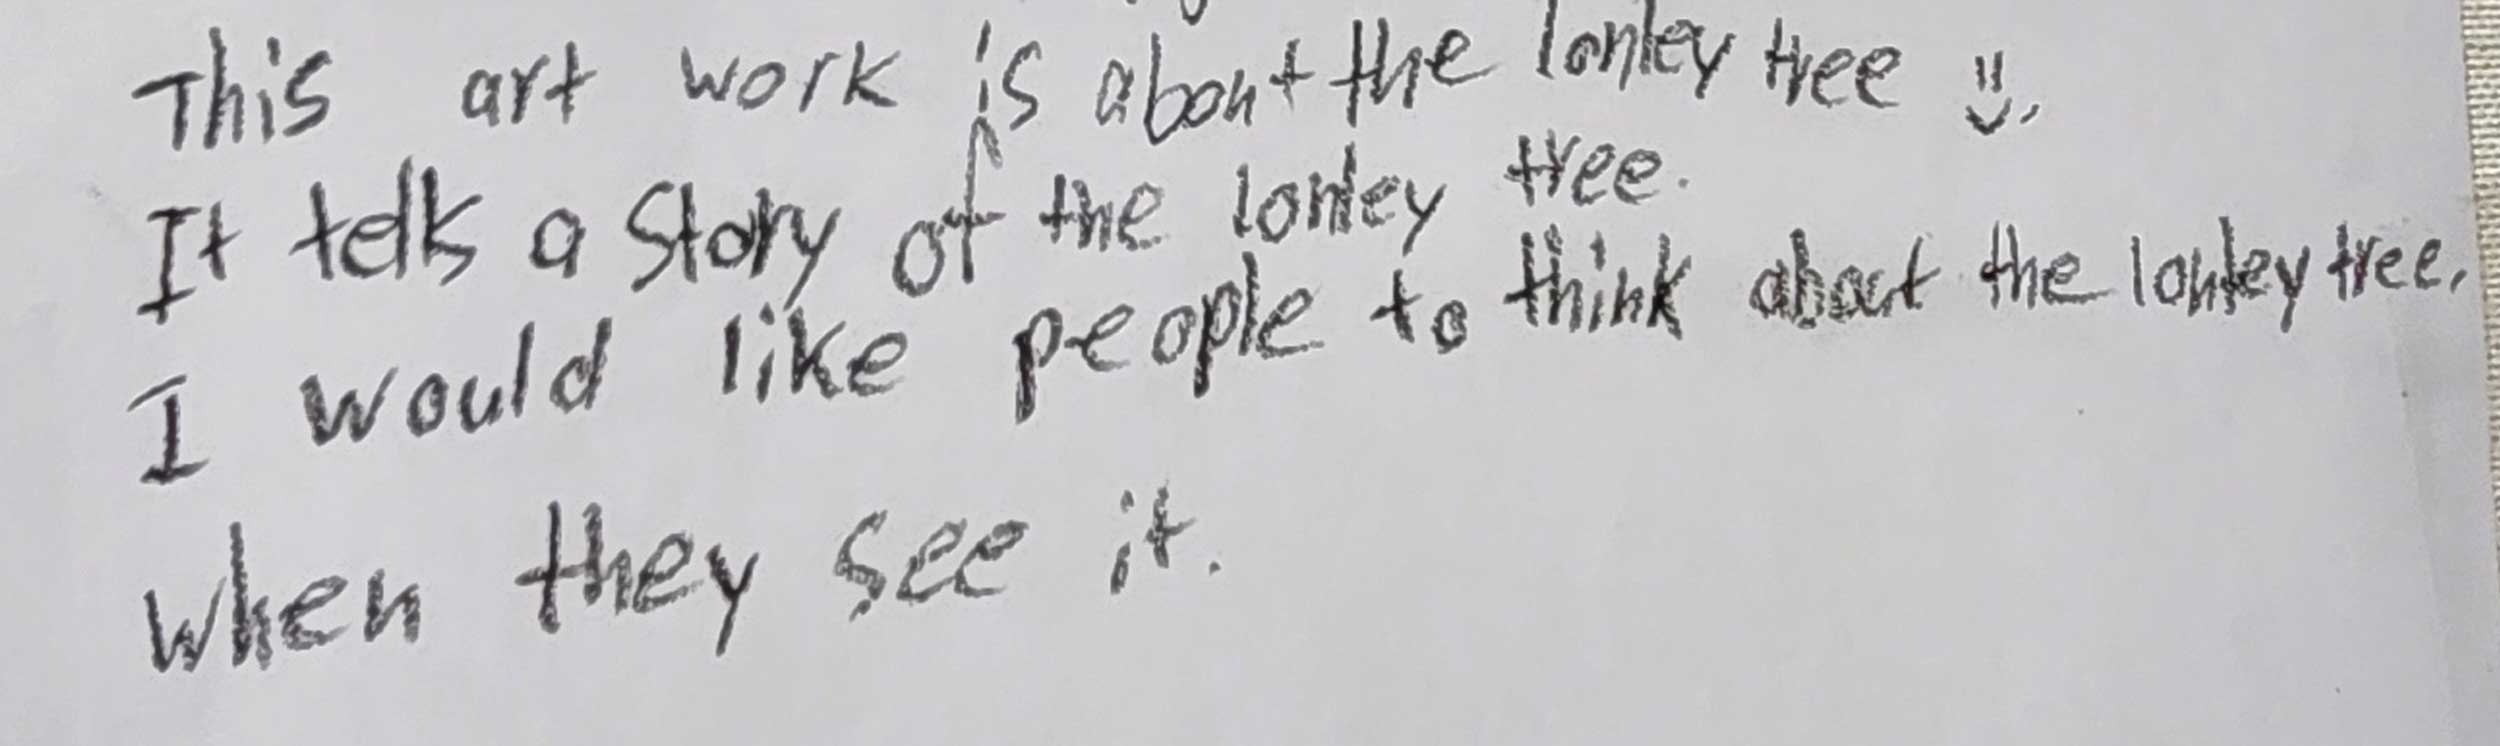 This art work is about the lonley tree :).
It tells a story of the lonley tree.
I would like people to think about the lonley tree.
when they see it.